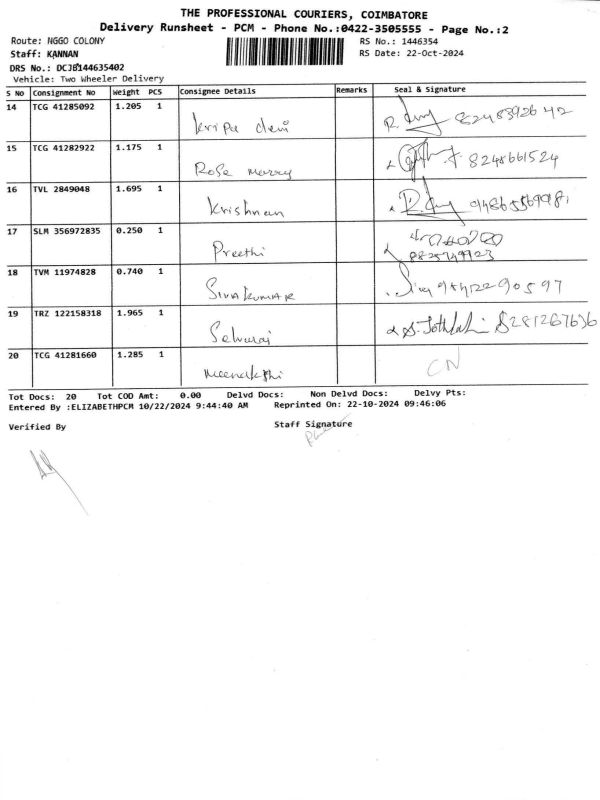 THE PROFESSIONAL COURIERS, COIMBATORE
Delivery Runsheet - PCM - Phone No.:0422-3505555 - Page No.:2
Route: NGGO COLONY RS No.: 1446354
Staff: KANNAN RS Date: 22-Oct-2024
DRS No.: DCJB144635402
Vehicle: Two Wheeler Delivery
S No Consignment No Weight PCS Consignee Details Remarks Seal & Signature
14 TCG 41285092 1.205 1
Kripa devi
15 TCG 41282922 1.175 1
Rose marry 8248661524
16 TVL 2849048 1.695 1
Krishnan
17 SLM 356972835 0.250 1
Preethi
18 TVM 11974828 0.740 1
Sivakumar
19 TRZ 122158318 1.965 1
Selvaraj 8281267636
20 TCG 41281660 1.285 1 CN
Meenakshi
Tot Docs: 20 Tot COD Amt: 0.00 Delvd Docs: Non Delvd Docs: Delvy Pts:
Entered By :ELIZABETHPCM 10/22/2024 9:44:40 AM Reprinted On: 22-10-2024 09:46:06
Verified By Staff Signature